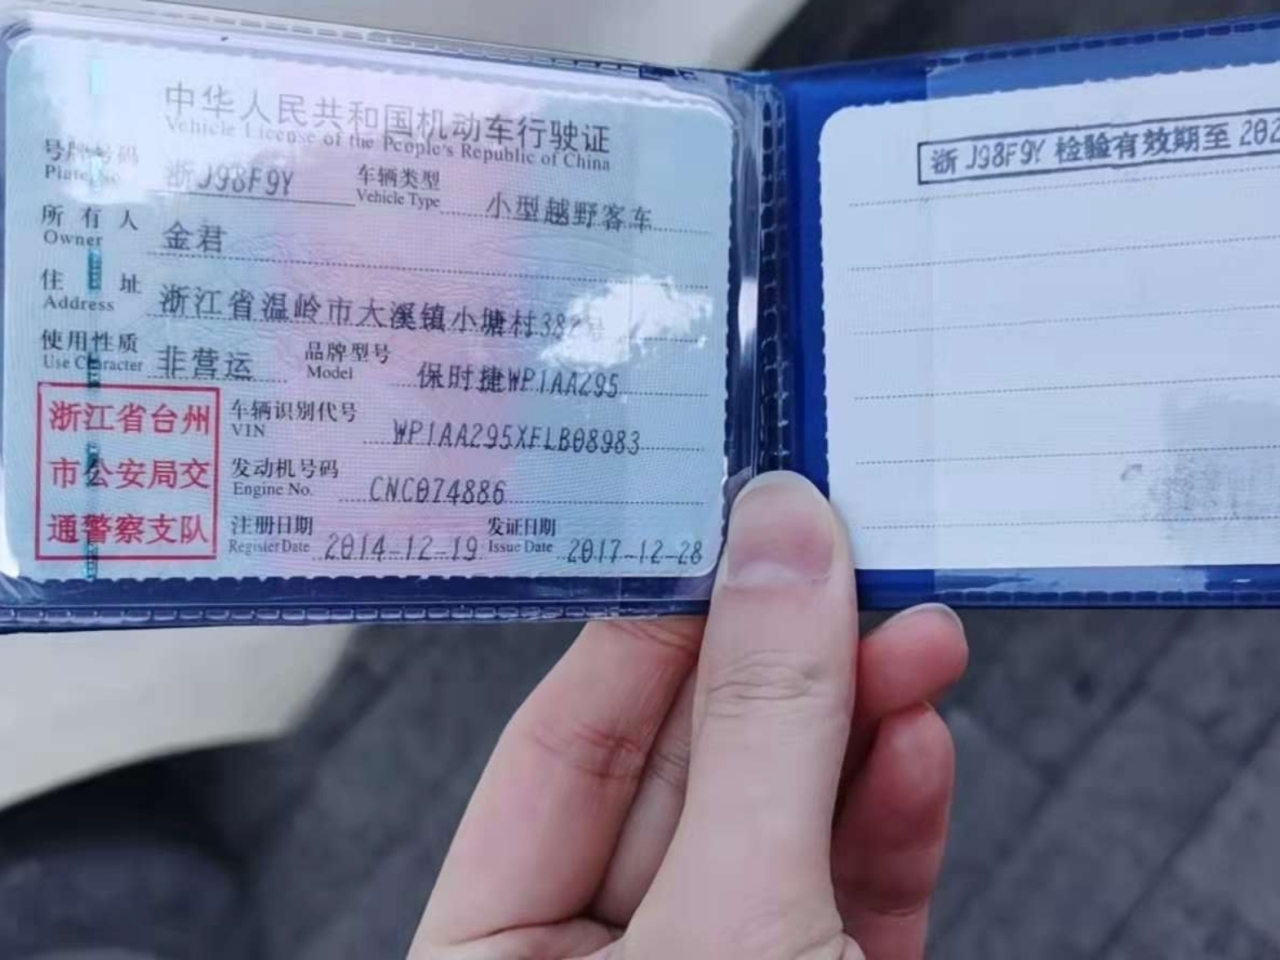 中华人民共和国机动车行驶证
Vehicle License of the People's Republic of China
号牌号码 浙J98F9Y 车辆类型 小型越野客车
Plate No. Vehicle Type
所有人 金君
Owner
住址 浙江省温岭市大溪镇小塘村382号
Address
使用性质 非营运 品牌型号 保时捷WP1AA295
Use Character Model
浙江省台州
市公安局交
通警察支队
车辆识别代号 WP1AA295XFLB08983
VIN
发动机号码 CNC074886
Engine No.
注册日期 2014-12-19 发证日期 2017-12-28
Register Date Issue Date
浙J98F9Y 检验有效期至 202